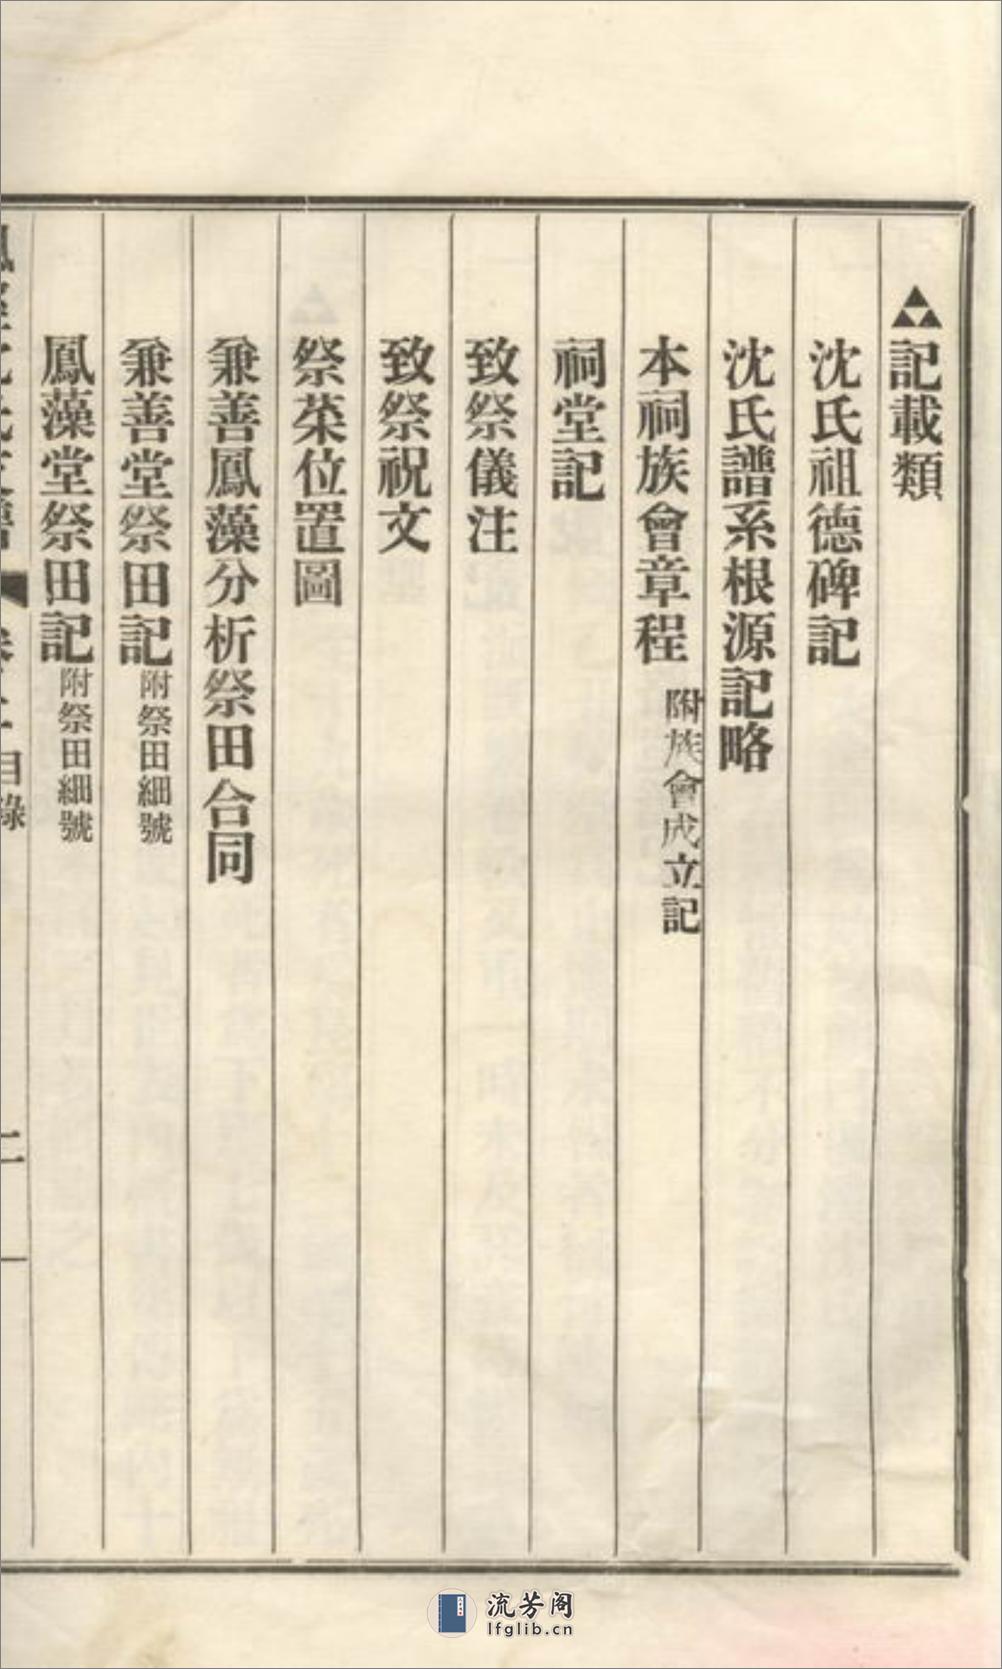 記載類
沈氏祖德碑記
沈氏譜系根源記略
本祠族會章程 附族會成立記
祠堂記
致祭儀注
致祭祝文
祭菜位置圖
兼善鳳藻分析祭田合同
兼善堂祭田記 附祭田細號
鳳藻堂祭田記 附祭田細號
目錄
流芳阁
lfglib.cn